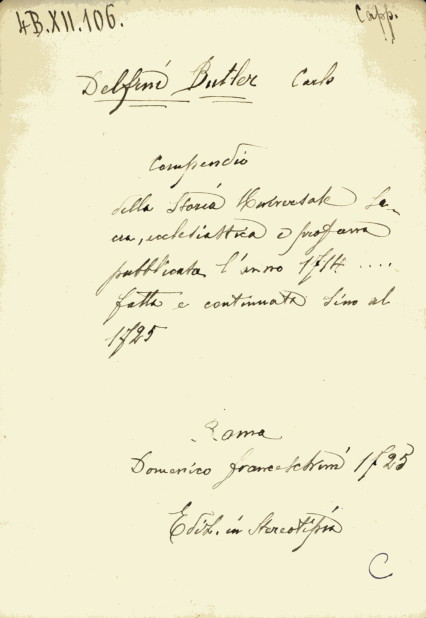 4B.XII.106.
Capp.
Delfini Butler Carlo
Compendio
della Storia Universale Sa-
cra, ecclesiastica e profana
pubblicata l'anno 1714 ....
fatta e continuata sino al
1725
Roma
Domenico Franceschini 1725
Ediz. in Stereotipia
C